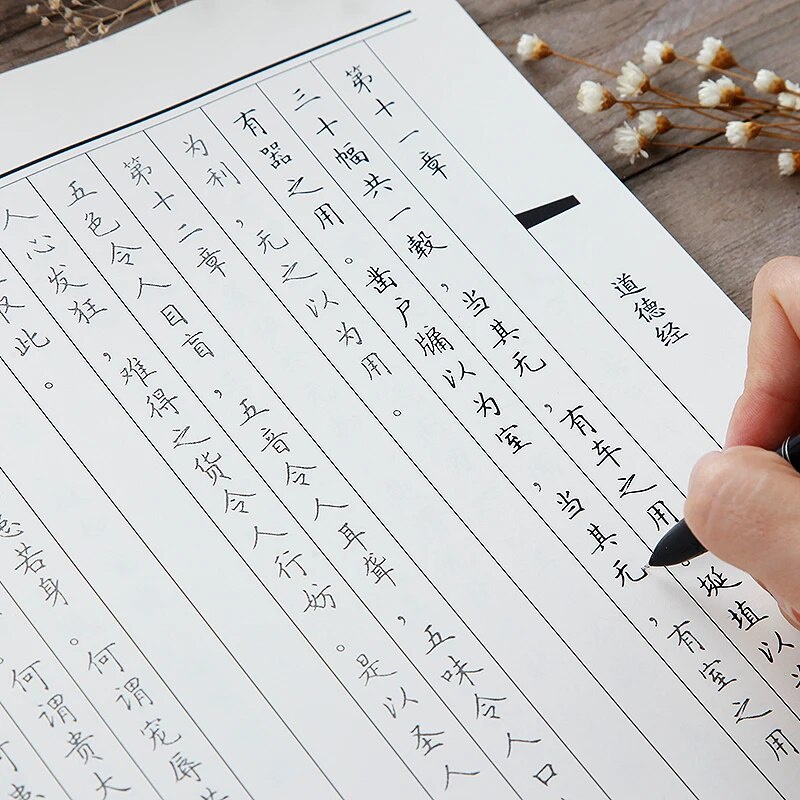 道德经
第十一章
三十幅共一毂，当其无，有车之用。埏埴以
有器之用。凿户牖以为室，当其无，有室之用
为利，无之以为用。
第十二章
五色令人目盲，五音令人耳聋，五味令人口
人心发狂，难得之货令人行妨。是以圣人
此。
若身。何谓宠辱
何谓贵大